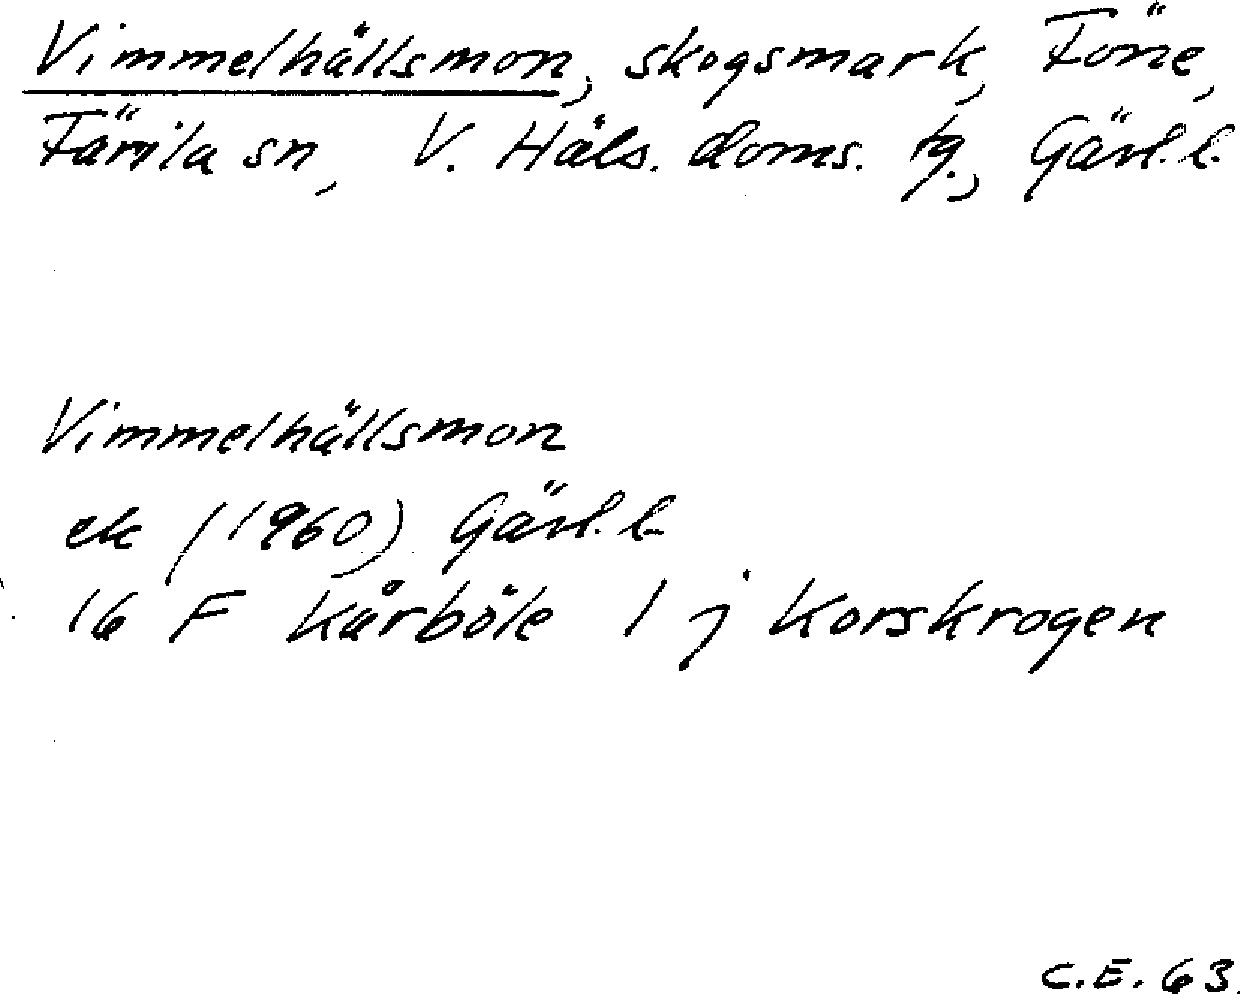 Vimmelhällsmon, skogsmark, Föne,
Färila sn, V. Häls. doms. tg., Gävl. l.
Vimmelhällsmon
ek (1960) Gävl. l.
16 F Kårböle 1 j Korskrogen
C.E. 63.